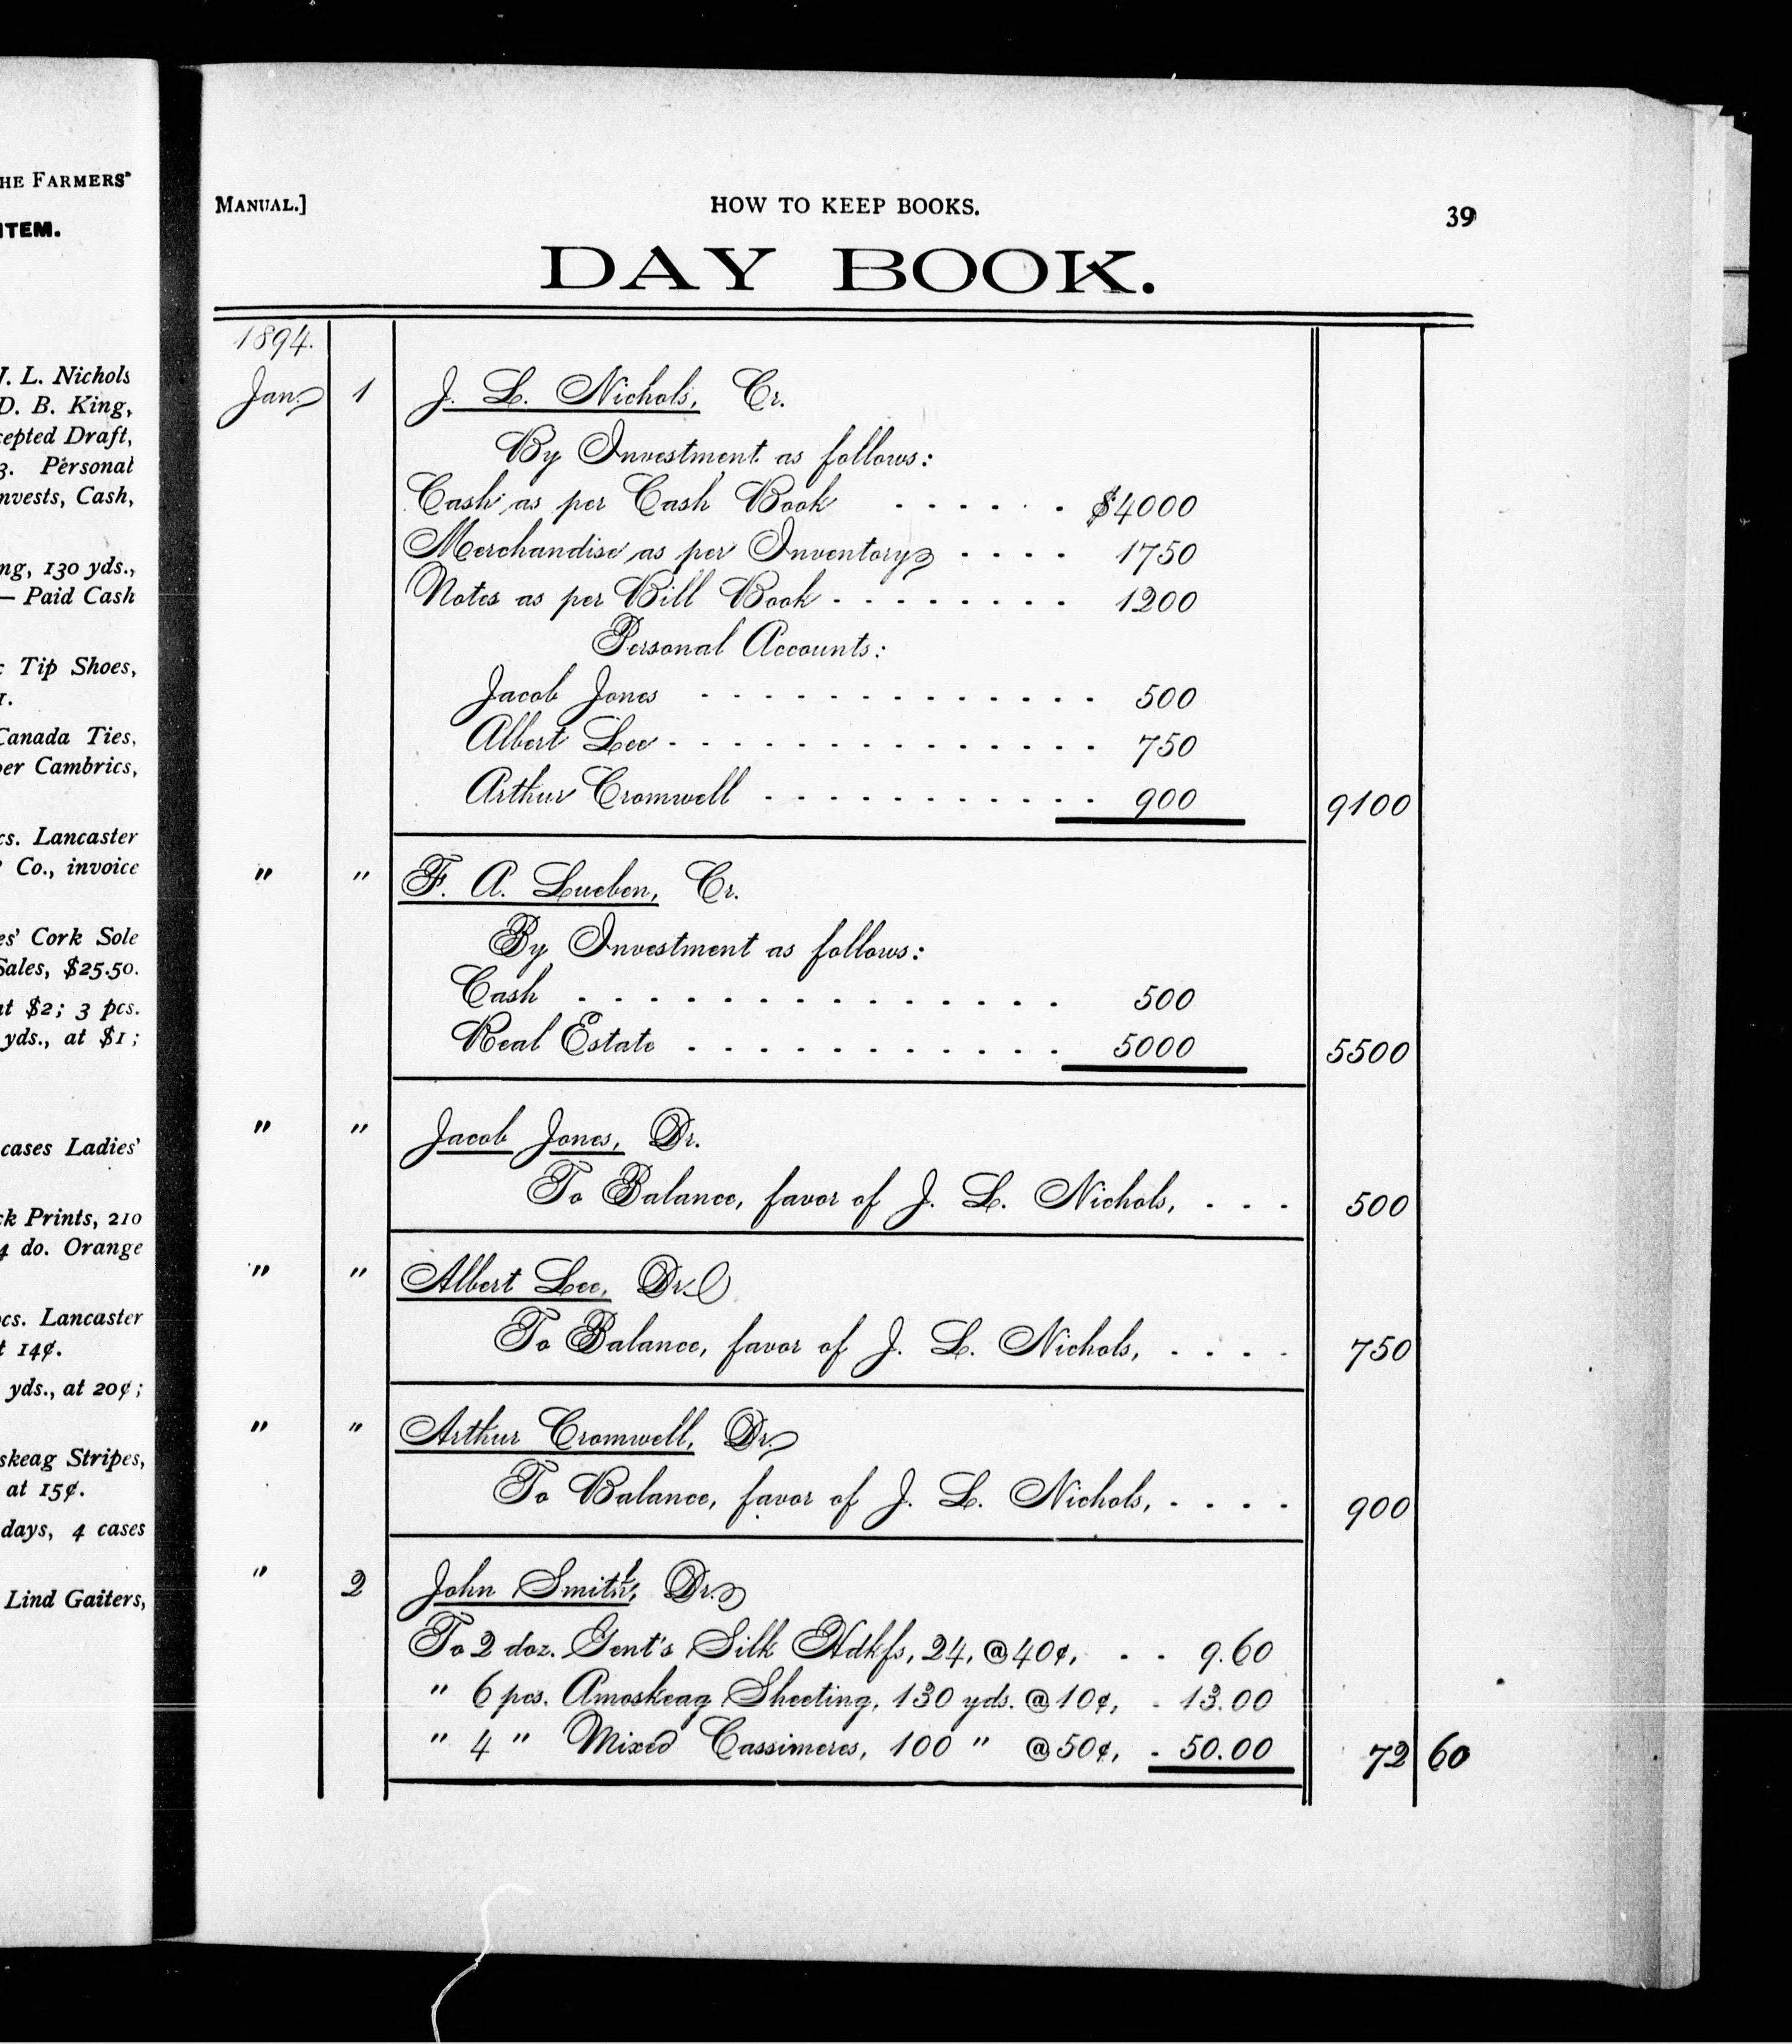 HE FARMERS'
ITEM.
J. L. Nichols
D. B. King,
cepted Draft,
3. Personal
nvests, Cash,
ng, 130 yds.,
— Paid Cash
Tip Shoes,
1.
Canada Ties,
er Cambrics,
cs. Lancaster
Co., invoice
es' Cork Sole
Sales, $25.50.
at $2; 3 pcs.
yds., at $1;
cases Ladies'
ck Prints, 210
4 do. Orange
cs. Lancaster
t 14¢.
yds., at 20¢;
skeag Stripes,
at 15¢.
days, 4 cases
Lind Gaiters,
MANUAL.] HOW TO KEEP BOOKS. 39
DAY BOOK.
1894.
Jan. 1 J. L. Nichols, Cr.
By Investment as follows:
Cash as per Cash Book . . . . . . $4000
Merchandise as per Inventory . . . . 1750
Notes as per Bill Book . . . . . . . . 1200
Personal Accounts:
Jacob Jones . . . . . . . . . . . . . . 500
Albert Lee . . . . . . . . . . . . . . . 750
Arthur Cromwell . . . . . . . . . . . . 900 9100
" " F. A. Lueben, Cr.
By Investment as follows:
Cash . . . . . . . . . . . . . . 500
Real Estate . . . . . . . . . . . 5000 5500
" " Jacob Jones, Dr.
To Balance, favor of J. L. Nichols, . . . 500
" " Albert Lee, Dr.
To Balance, favor of J. L. Nichols, . . . . 750
" " Arthur Cromwell, Dr.
To Balance, favor of J. L. Nichols, . . . . 900
" 2 John Smith, Dr.
To 2 doz. Gent's Silk Hdkfs, 24, @ 40¢, . . 9.60
" 6 pcs. Amoskeag Sheeting, 130 yds. @ 10¢, . 13.00
" 4 " Mixed Cassimeres, 100 " @ 50¢, . 50.00 72 60